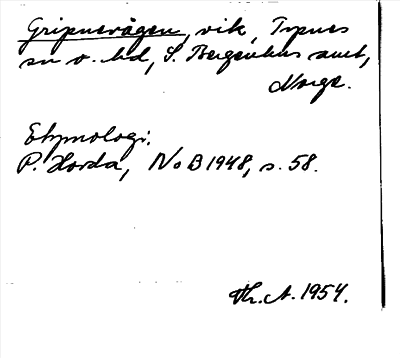 Gripnevågen, vik, Tysnes
sn o. hd, S. Bergenhus amt,
Norge.
Etymologi:
P. Horda, NoB 1948, s. 58.
Th. A. 1954.